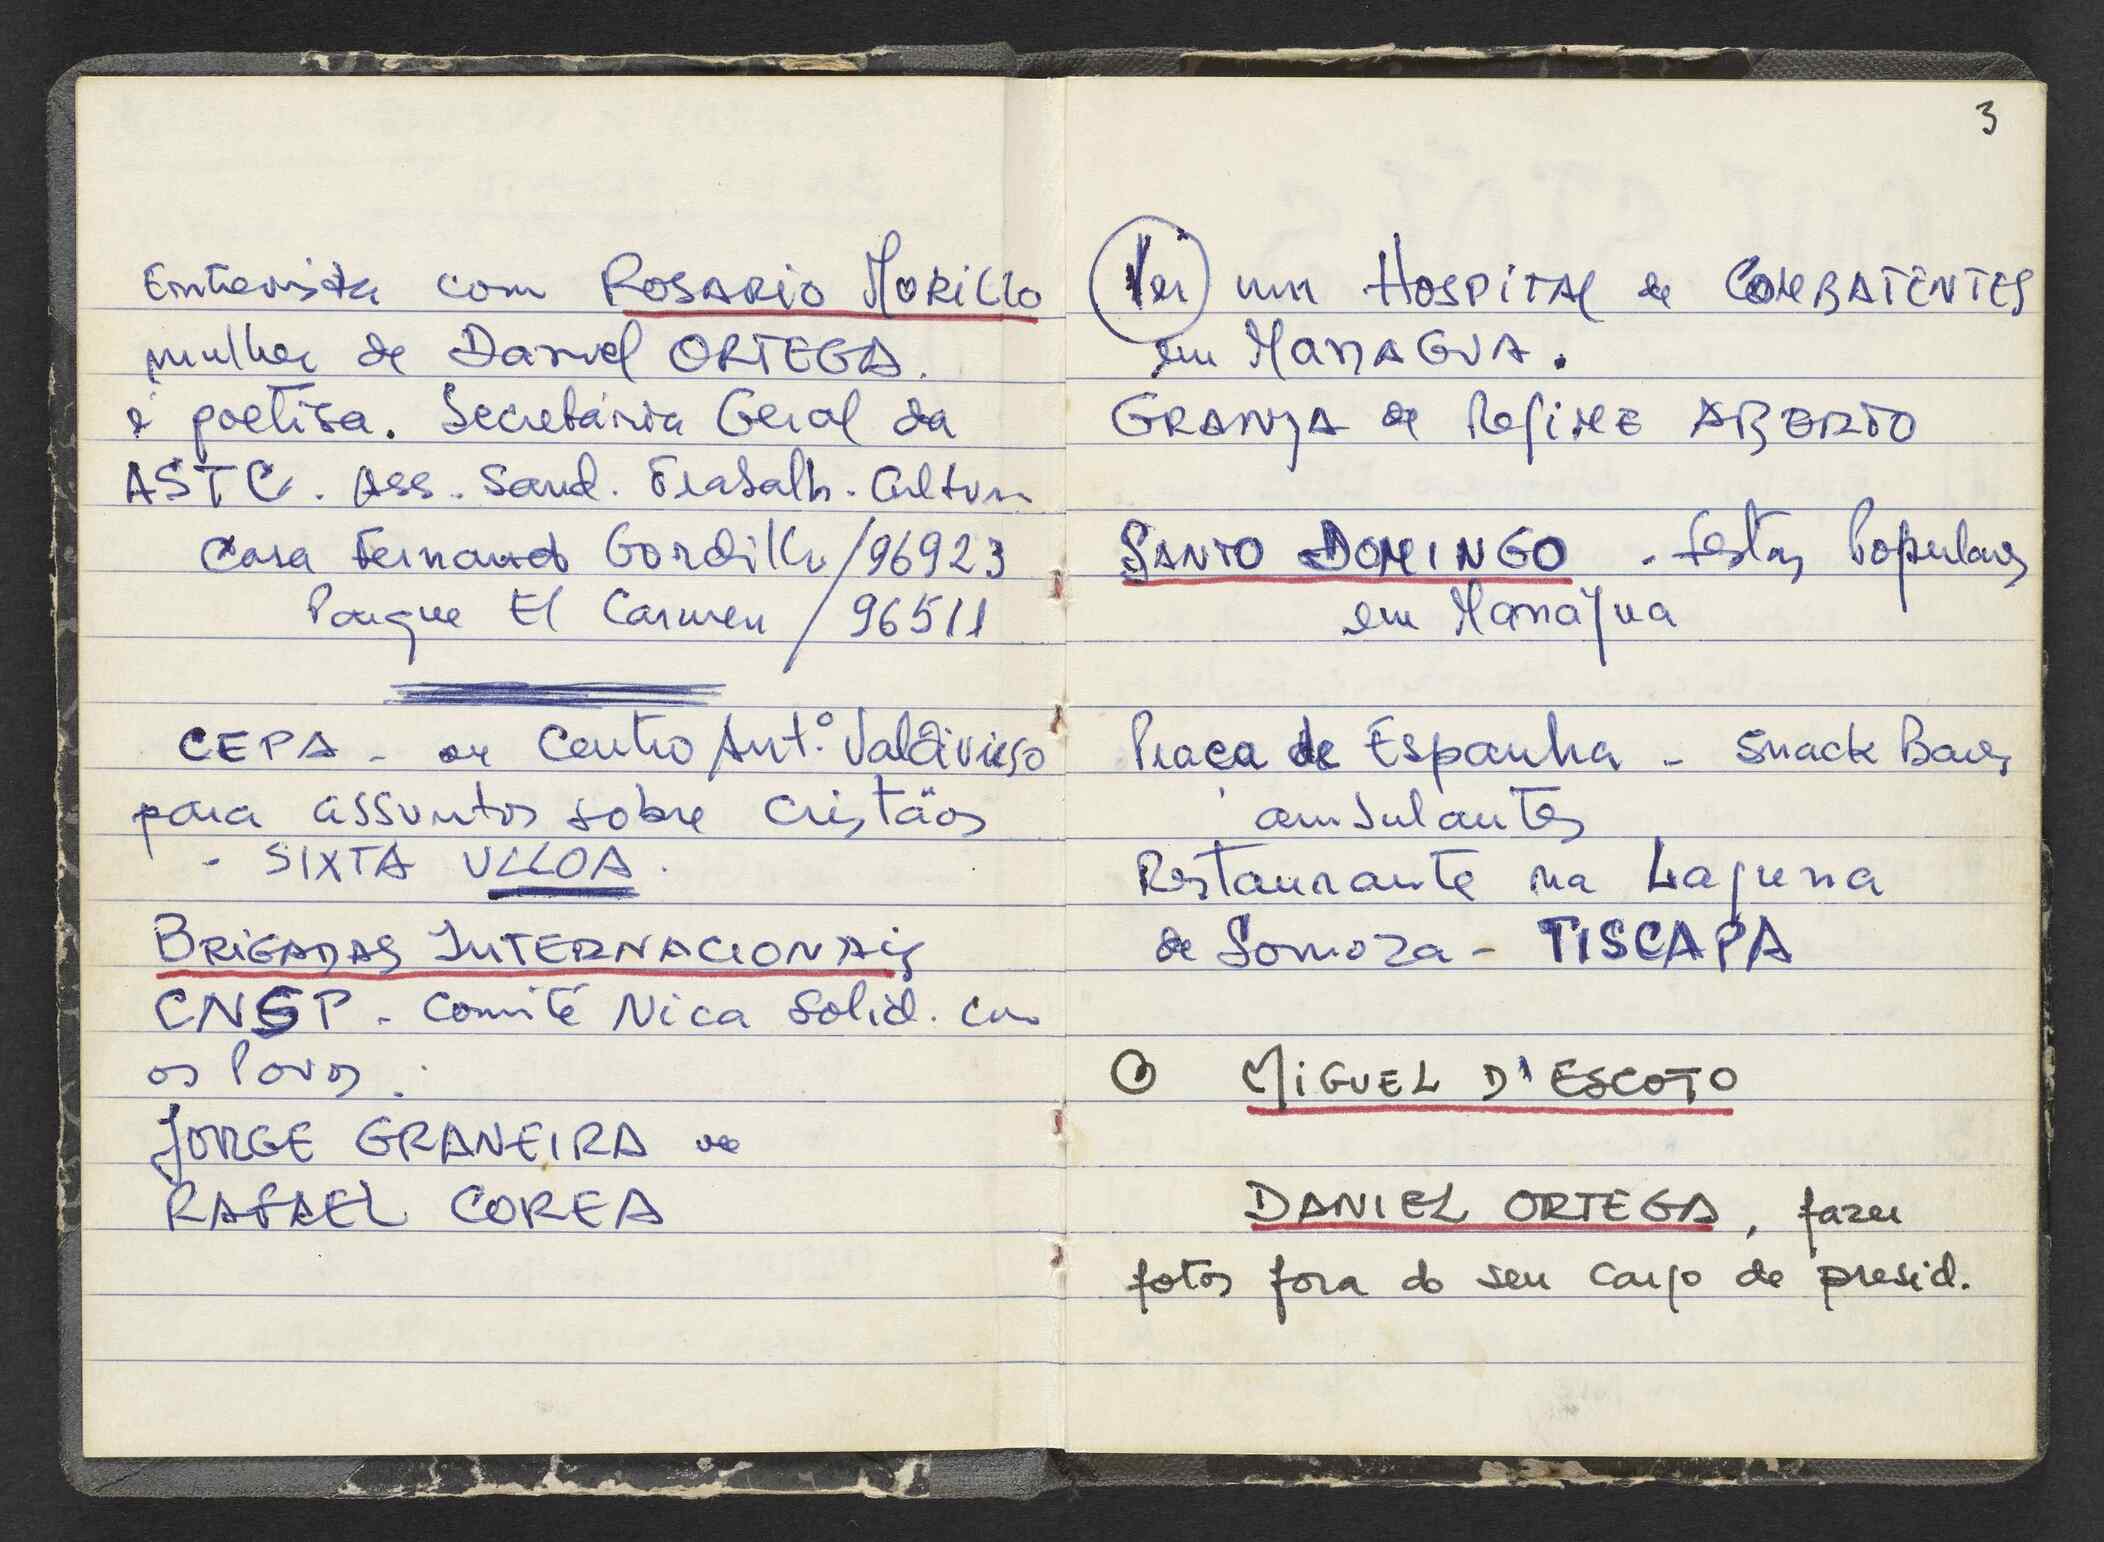 Entrevista com ROSARIO MORILLO
mulher de Daniel ORTEGA.
é poetisa. Secretária Geral da
ASTC. Ass. Sand. Trabalh. Cultura
Casa Fernando Gordillo / 96923
Parque El Carmen / 96511
CEPA - ou Centro Ant.º Valdivieso
para assuntos sobre cristãos
- SIXTA ULLOA.
BRIGADAS INTERNACIONAIS
CNSP - Comité Nica Solid. com
os Povos.
JORGE GRANEIRA ou
RAFAEL COREA
3
Ver um HOSPITAL de COMBATENTES
em MANAGUA.
GRANJA de Regime ABERTO
SANTO DOMINGO - festas Populares
em Manágua
Praça de Espanha - Snack Bares
ambulantes
Restaurante na Laguna
de Somoza - TISCAPA
O MIGUEL D'ESCOTO
DANIEL ORTEGA, fazer
fotos fora do seu cargo de presid.